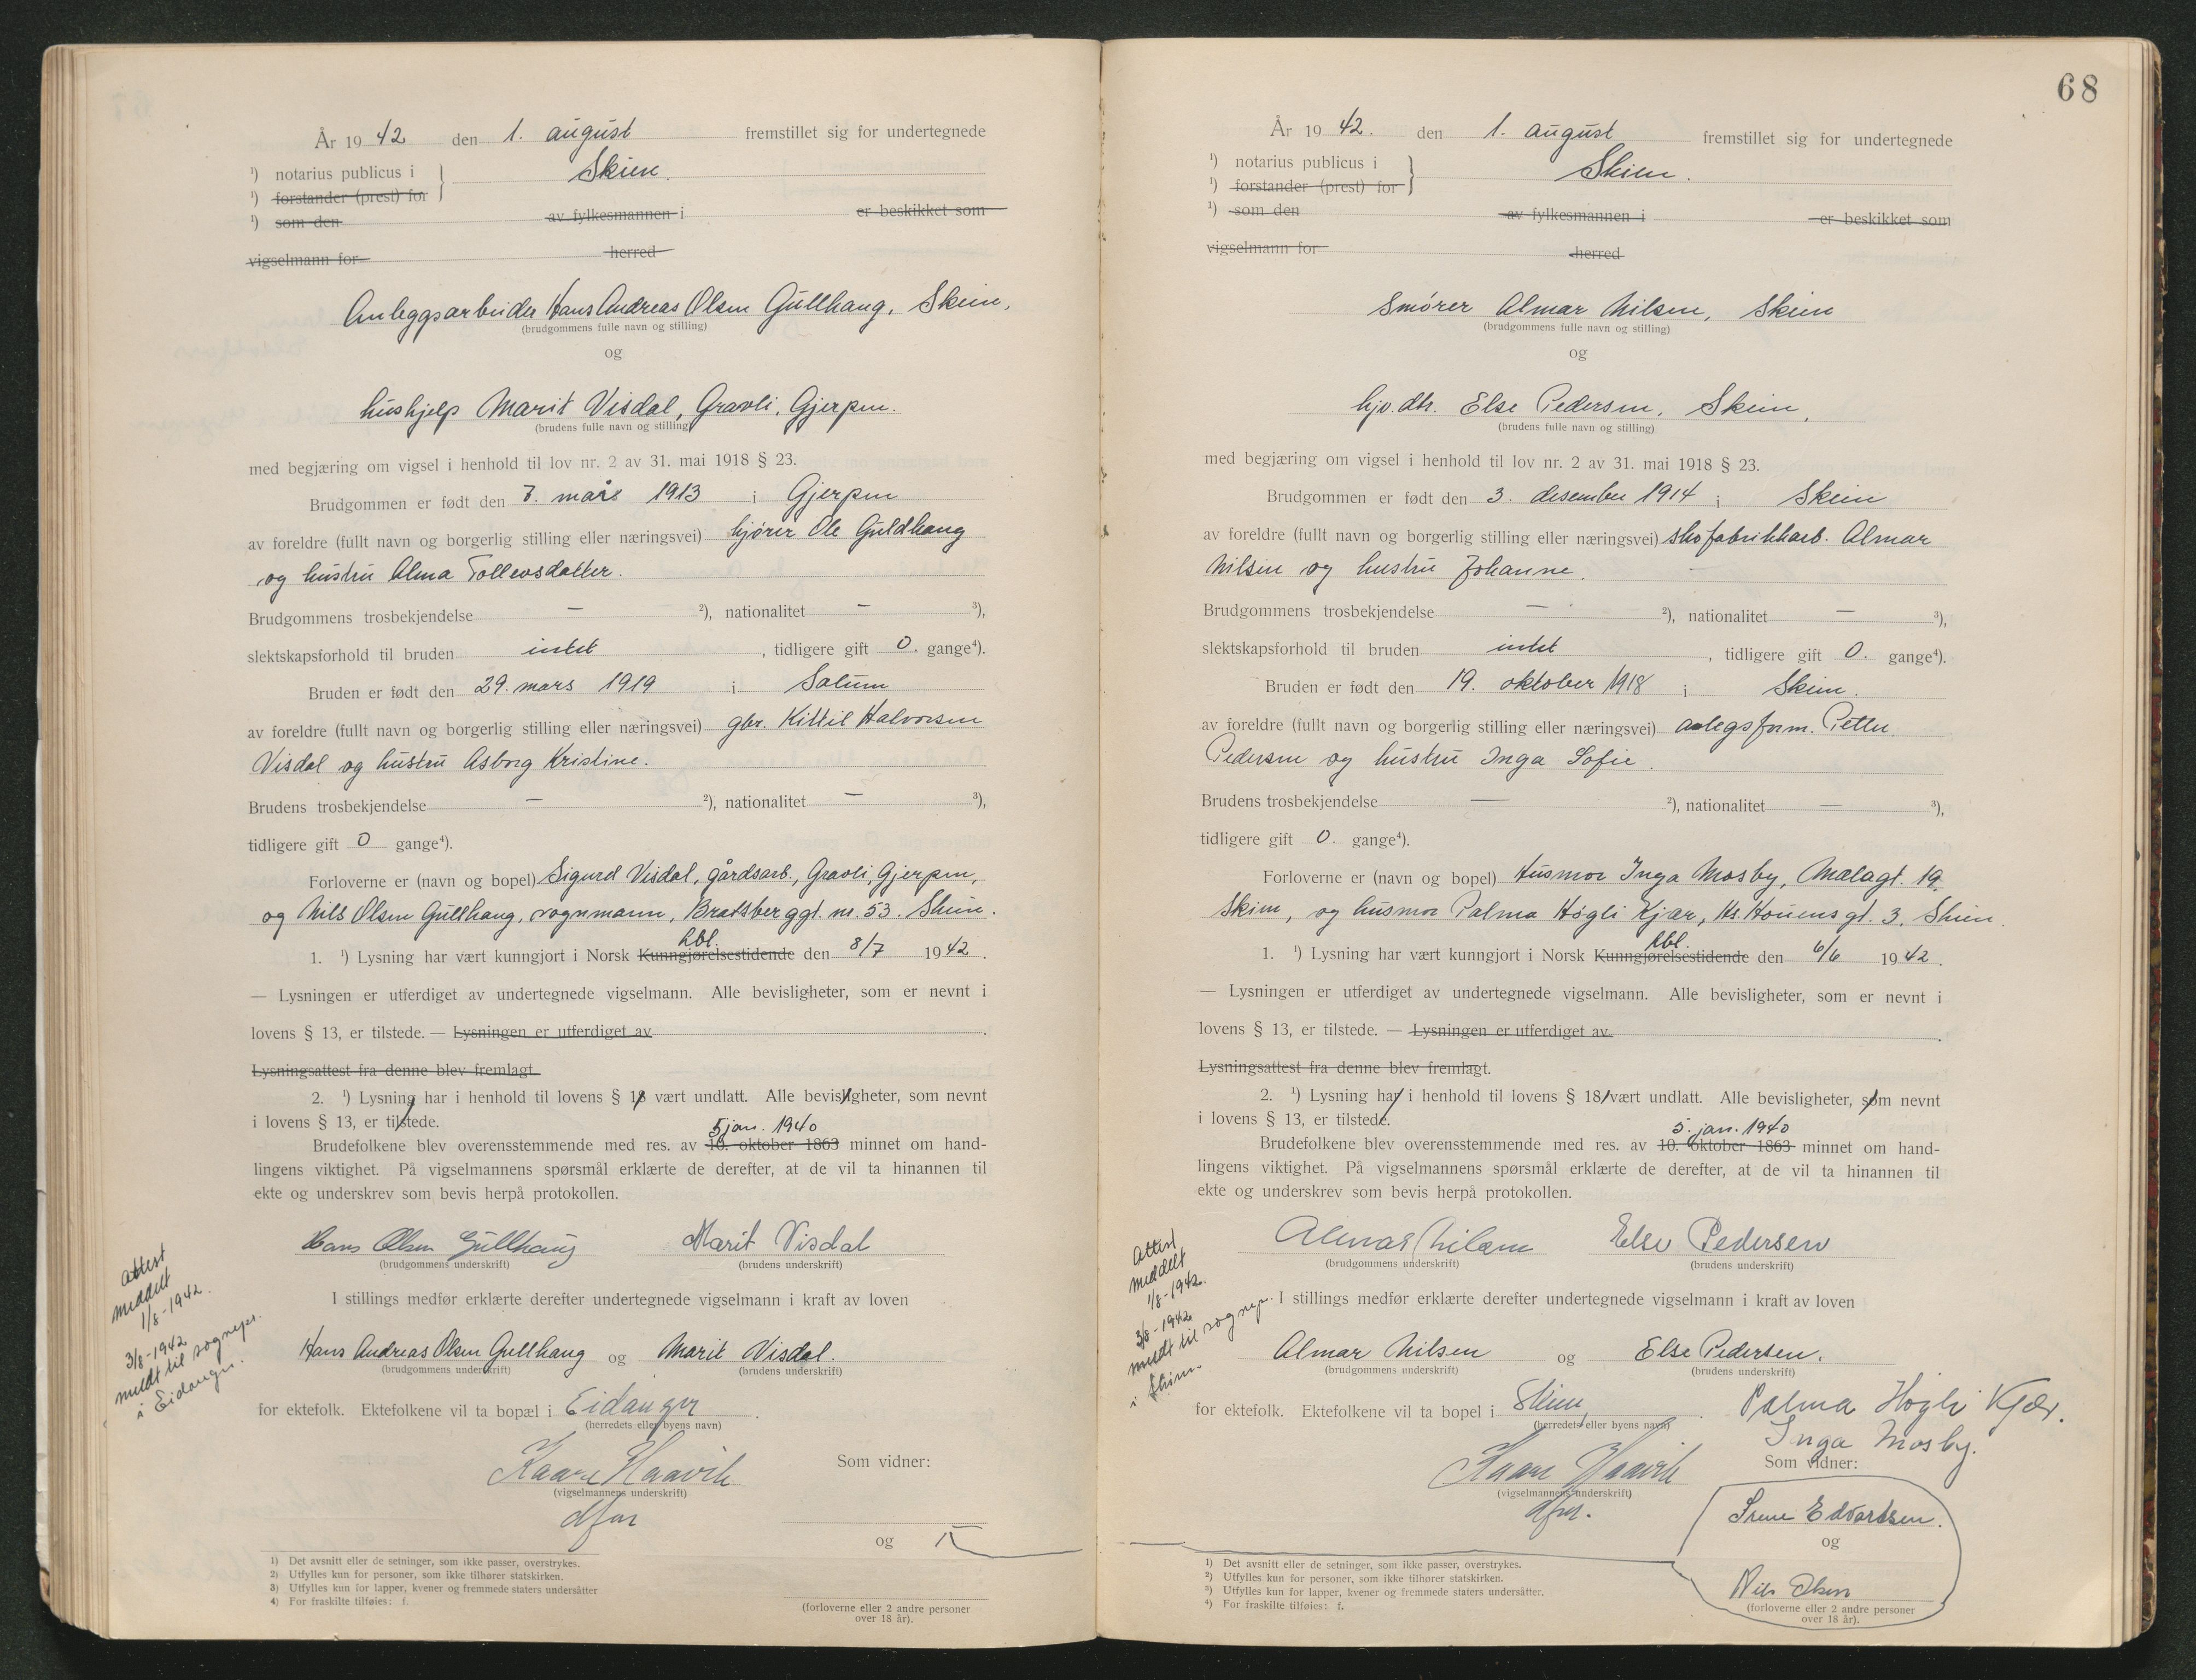 År 19 42 den 1. august fremstillet sig for undertegnede
¹) notarius publicus i Skien.
¹) forstander (prest) for
¹) som den av fylkesmannen i er beskikket som
vigselmann for herred
Anleggsarbeider Hans Andreas Olsen Gullhaug, Skien,
(brudgommens fulle navn og stilling)
og
hushjelp Marit Visdal, Gravli, Gjerpen.
(brudens fulle navn og stilling)
med begjæring om vigsel i henhold til lov nr. 2 av 31. mai 1918 § 23.
Brudgommen er født den 7. mars 1913 i Gjerpen
av foreldre (fullt navn og borgerlig stilling eller næringsvei) kjører Ole Guldhaug
og hustru Alma Tollevsdatter.
Brudgommens trosbekjendelse — ²), nationalitet — ³),
slektskapsforhold til bruden intet, tidligere gift 0. gange⁴).
Bruden er født den 29. mars 1919 i Solum
av foreldre (fullt navn og borgerlig stilling eller næringsvei) gbr. Kittil Halvorsen
Visdal og hustru Asborg Kristine.
Brudens trosbekjendelse — ²), nationalitet — ³),
tidligere gift 0 gange⁴).
Forloverne er (navn og bopel) Sigurd Visdal, gårdsarb., Gravli, Gjerpen,
og Nils Olsen Gullhaug, vognmann, Bratsberggt. nr. 53. Skien.
hbl.
1. ¹) Lysning har vært kunngjort i Norsk Kunngjørelsestidende den 8/7 1942.
— Lysningen er utferdiget av undertegnede vigselmann. Alle bevisligheter, som er nevnt i
lovens § 13, er tilstede. — Lysningen er utferdiget av
Lysningsattest fra denne blev fremlagt.
2. ¹) Lysning har i henhold til lovens § 18 vært undlatt. Alle bevisligheter, som nevnt
i lovens § 13, er tilstede.
5 jan. 1940
Brudefolkene blev overensstemmende med res. av 10. oktober 1863 minnet om hand-
lingens viktighet. På vigselmannens spørsmål erklærte de derefter, at de vil ta hinannen til
ekte og underskrev som bevis herpå protokollen.
Hans Olsen Gullhaug Marit Visdal
(brudgommens underskrift) (brudens underskrift)
attest
meddelt
1/8-1942.
3/8-1942
meldt til sognepr.
i Eidanger.
I stillings medfør erklærte derefter undertegnede vigselmann i kraft av loven
Hans Andreas Olsen Gullhaug og Marit Visdal.
(brudgommens underskrift) (brudens underskrift)
for ektefolk. Ektefolkene vil ta bopæl i Eidanger.
(herredets eller byens navn)
Kaare Haavik
(vigselmannens underskrift)
dfm
Som vidner:
og
(forloverne eller 2 andre personer
over 18 år).
1) Det avsnitt eller de setninger, som ikke passer, overstrykes.
2) Utfylles kun for personer, som ikke tilhører statskirken.
3) Utfylles kun for lapper, kvener og fremmede staters undersåtter
4) For fraskilte tilføies: f.
68
År 19 42. den 1. august fremstillet sig for undertegnede
¹) notarius publicus i Skien.
¹) forstander (prest) for
¹) som den av fylkesmannen i er beskikket som
vigselmann for herred
Smører Almar Nilsen, Skien
(brudgommens fulle navn og stilling)
og
hjv. dtr. Else Pedersen, Skien,
(brudens fulle navn og stilling)
med begjæring om vigsel i henhold til lov nr. 2 av 31. mai 1918 § 23.
Brudgommen er født den 3. desember 1914 i Skien
av foreldre (fullt navn og borgerlig stilling eller næringsvei) skofabrikkarb. Almar
Nilsen og hustru Johanne.
Brudgommens trosbekjendelse — ²), nationalitet — ³),
slektskapsforhold til bruden intet, tidligere gift 0. gange⁴).
Bruden er født den 19. oktober 1918 i Skien.
av foreldre (fullt navn og borgerlig stilling eller næringsvei) anlegsform. Petter
Pedersen og hustru Inga Sofie.
Brudens trosbekjendelse — ²), nationalitet — ³),
tidligere gift 0. gange⁴).
Forloverne er (navn og bopel) Husmor Inga Mosby, Mælagt. 19.
Skien, og husmor Palma Høgli Kjær, Hs. Houens gt. 3, Skien.
hbl.
1. ¹) Lysning har vært kunngjort i Norsk Kunngjørelsestidende den 6/6 1942.
— Lysningen er utferdiget av undertegnede vigselmann. Alle bevisligheter, som er nevnt i
lovens § 13, er tilstede. — Lysningen er utferdiget av
Lysningsattest fra denne blev fremlagt.
2. ¹) Lysning har i henhold til lovens § 18 vært undlatt. Alle bevisligheter, som nevnt
i lovens § 13, er tilstede.
5. jan. 1940
Brudefolkene blev overensstemmende med res. av 10. oktober 1863 minnet om hand-
lingens viktighet. På vigselmannens spørsmål erklærte de derefter, at de vil ta hinannen til
ekte og underskrev som bevis herpå protokollen.
Almar Nilsen Else Pedersen
(brudgommens underskrift) (brudens underskrift)
Attest
meddelt
1/8-1942.
3/8-1942
meldt til sognepr.
i Skien.
I stillings medfør erklærte derefter undertegnede vigselmann i kraft av loven
Almar Nilsen og Else Pedersen.
(brudgommens underskrift) (brudens underskrift)
for ektefolk. Ektefolkene vil ta bopel i Skien,
(herredets eller byens navn)
Palma Høgli Kjær.
Inga Mosby.
Kaare Haavik
(vigselmannens underskrift)
dfm.
Som vidner:
Irene Edvardsen.
og
Nils Olsen
(forloverne eller 2 andre personer
over 18 år).
1) Det avsnitt eller de setninger, som ikke passer, overstrykes.
2) Utfylles kun for personer, som ikke tilhører statskirken.
3) Utfylles kun for lapper, kvener og fremmede staters undersåtter.
4) For fraskilte tilføies: f.